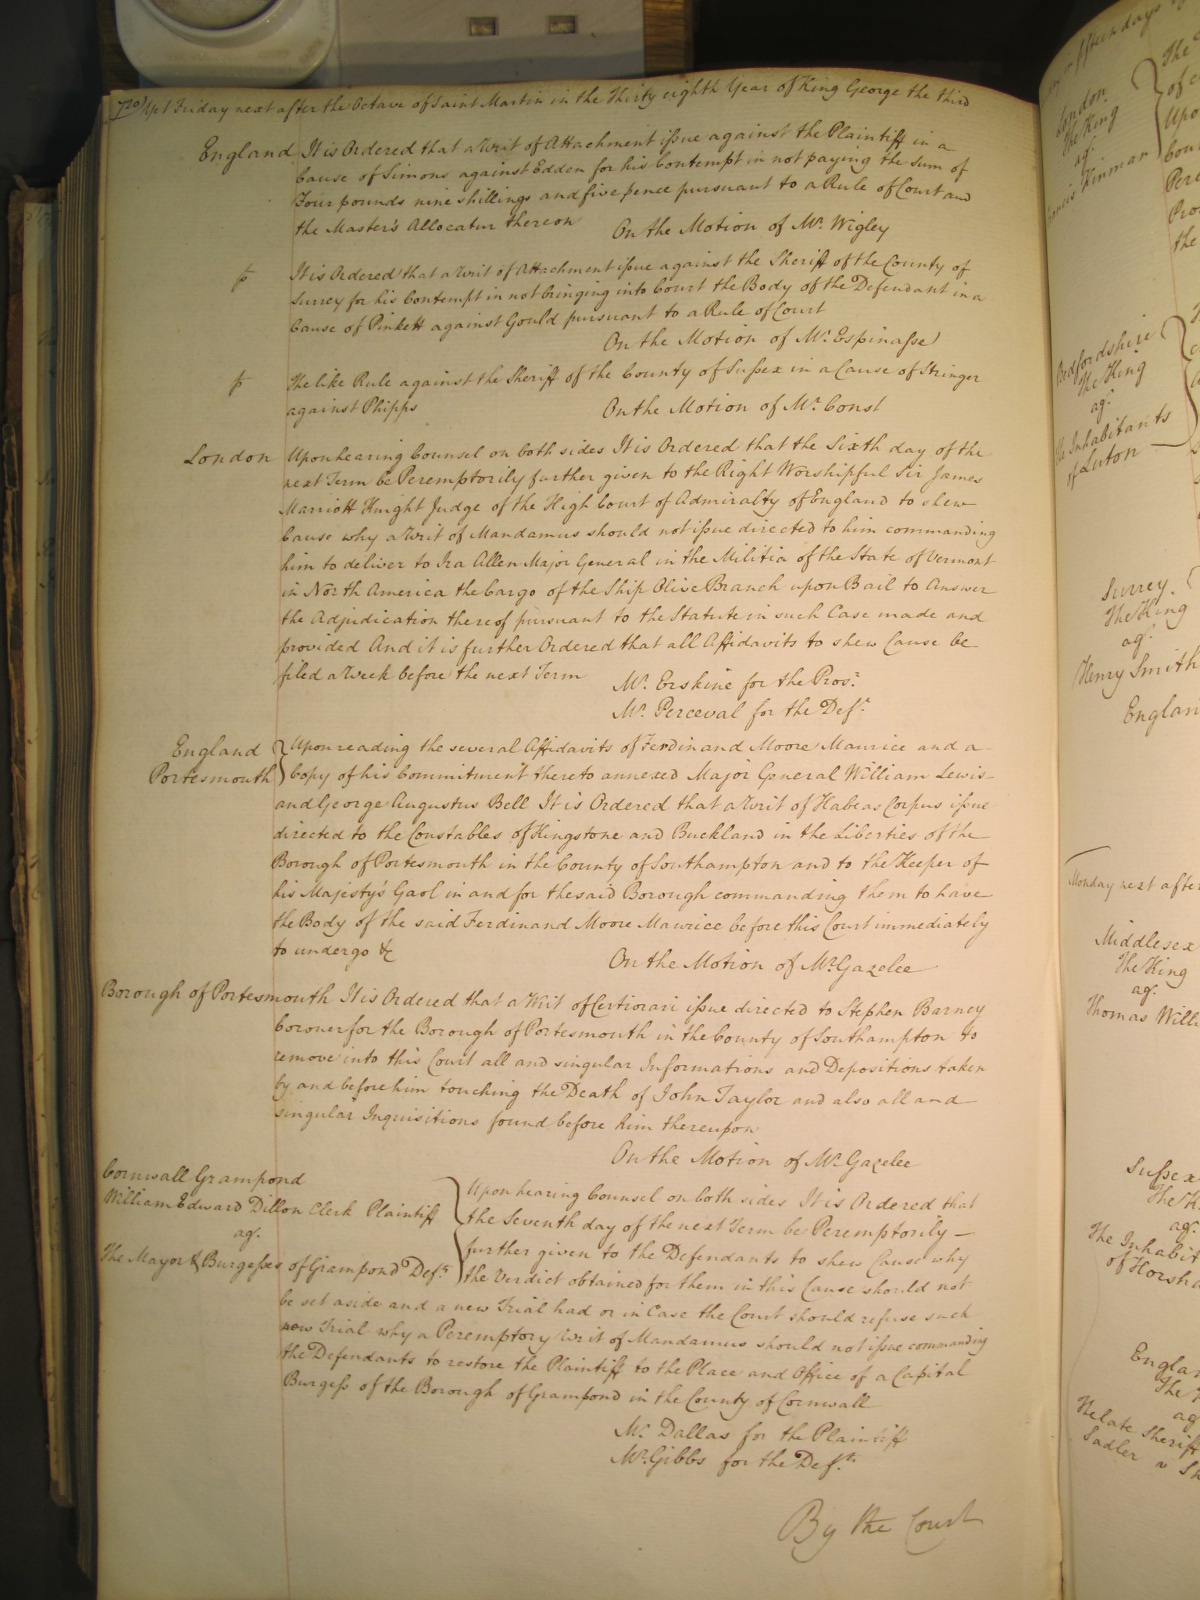 720 Yet Friday next after the Octave of Saint Martin in the Thirty eighth Year of King George the third
England It is Ordered that a Writ of Attachment issue against the Plaintiff in a
Cause of Simons against Edden for his Contempt in not paying the Sum of
Four pounds nine shillings and five pence pursuant to a Rule of Court and
the Master's Allocatur thereon
On the Motion of Mr. Wigley
It is Ordered that a Writ of Attachment issue against the Sheriff of the County of
Surrey for his Contempt in not bringing into Court the Body of the Defendant in a
Cause of Pinkett against Gould pursuant to a Rule of Court
On the Motion of Mr. Espinasse
The like Rule against the Sheriff of the County of Sussex in a Cause of Stringer
against Phipps
On the Motion of Mr. Const
London Upon hearing Counsel on both sides It is Ordered that the Sixth day of the
next Term be Peremptorily further given to the Right Worshipful Sir James
Marriott Knight Judge of the High Court of Admiralty of England to shew
Cause why a Writ of Mandamus should not issue directed to him commanding
him to deliver to Ira Allen Major General in the Militia of the State of Vermont
in North America the Cargo of the Ship Olive Branch upon Bail to Answer
the Adjudication thereof pursuant to the Statute in such Case made and
provided And it is further Ordered that all Affidavits to shew Cause be
filed a Week before the next Term
Mr. Erskine for the Prosr.
Mr. Perceval for the Deft.
England
Portesmouth
Upon reading the several Affidavits of Ferdinand Moore Maurice and a
Copy of his Commitment thereto annexed Major General William Lewis
and George Augustus Bell It is Ordered that a Writ of Habeas Corpus issue
directed to the Constables of Kingstone and Buckland in the Liberties of the
Borough of Portesmouth in the County of Southampton and to the Keeper of
his Majesty's Gaol in and for the said Borough commanding them to have
the Body of the said Ferdinand Moore Maurice before this Court immediately
to undergo &c
On the Motion of Mr. Gazelee
Borough of Portesmouth It is Ordered that a Writ of Certiorari issue directed to Stephen Barney
Coroner for the Borough of Portesmouth in the County of Southampton to
remove into this Court all and singular Informations and Depositions taken
by and before him touching the Death of John Taylor and also all and
singular Inquisitions found before him thereupon
On the Motion of Mr. Gazelee
Cornwall Grampond
William Edward Dillon Clerk Plaintiff
agt.
The Mayor & Burgesses of Grampond Defts.
Upon hearing Counsel on both sides It is Ordered that
the Seventh day of the next Term be Peremptorily
further given to the Defendants to shew Cause why
the Verdict obtained for them in this Cause should not
be set aside and a new Trial had or in Case the Court should refuse such
new Trial why a Peremptory Writ of Mandamus should not issue commanding
the Defendants to restore the Plaintiff to the Place and Office of a Capital
Burgess of the Borough of Grampond in the County of Cornwall
Mr. Dallas for the Plaintiff
Mr. Gibbs for the Defts.
By the Court
London
The King
agt.
Kinman
Bedfordshire
The King
agt.
The Inhabitants
of Luton
Surrey
The King
agt.
Henry Smith
Englan
Monday next after
Middlesex
The King
agt.
Thomas Willi
Sussex
agt.
The Inhabit
of Horsha
Englan
The late Sheriff
Sadler v